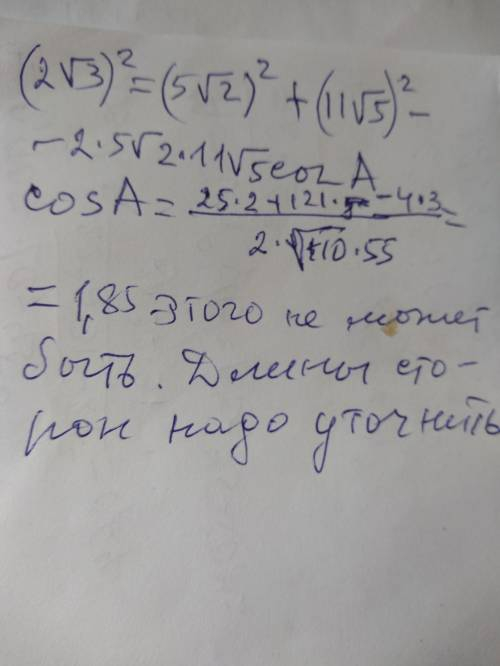 (2√3)² = (5√2)² + (11√5)² −
− 2·5√2·11√5 cos A
cos A = (25·2+121·5−4·3)/(2·√10·55) =
= 1,85 этого не может
быть. Длины сто-
рон надо уточнить